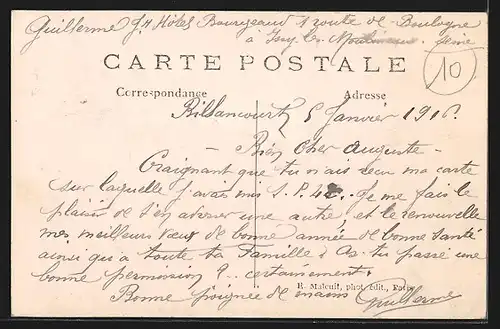 Guillerme J. H Hôtel Bourgeaud 1 route de Boulogne
à Issy les Moulineaux Seine
10
CARTE POSTALE
Correspondance Adresse
Billancourt 5 Janvier 1916.
- Bien Cher Auguste -
Craignant que tu n'ais reçu ma carte
sur laquelle j'avais mis S.P. Je me fais le
plaisir de t'en adresser une autre et te renouvelle
mes meilleurs vœux de bonne année de bonne santé
ainsi qu'à toute ta Famille. As-tu passé une
bonne permission ?.. certainement.
R. Malcuit, phot. édit., Paris
Bonne poignée de mains Guillerme